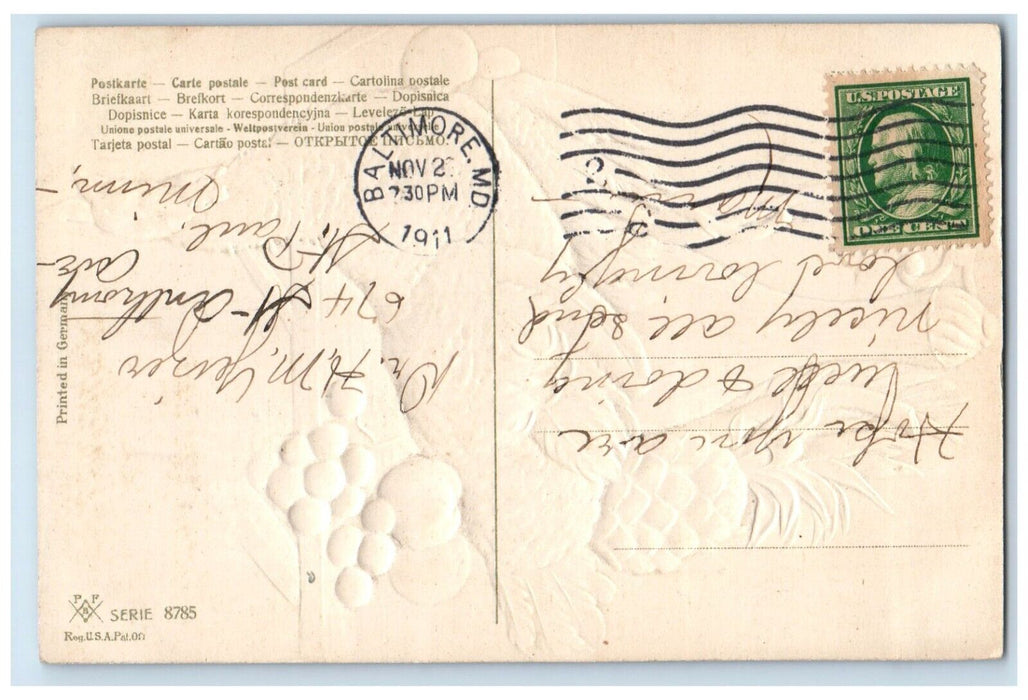 Postkarte — Carte postale — Post card — Cartolina postale
Briefkaart — Brefkort — Correspondenzkarte — Dopisnica
Dopisnice — Karta korespondencyjna — Levelező-Lap
Unione postale universale - Weltpostverein - Union postale universelle
Tarjeta postal — Cartão postal — ОТКРЫТОЕ ПИСЬМО.
BALTIMORE, MD.
NOV 2
7 30 PM
1911
U.S. POSTAGE
ONE CENT
Hope you are
well & doing
nicely all send
love lovingly
Dr. H. M.
674 St Anthony
Ave
St. Paul,
Minn.
Printed in Germany
P F
B
SERIE 8785
Reg. U.S.A. Pat. Off